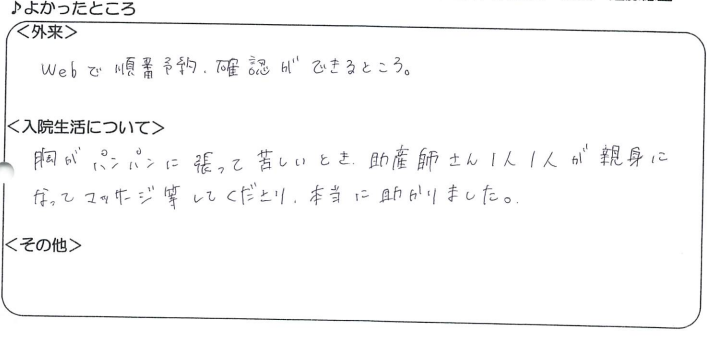 ♪よかったところ
＜外来＞
Webで順番予約、確認ができるところ。
＜入院生活について＞
胸がパンパンに張って苦しいとき、助産師さん1人1人が親身に
なってマッサージ等してくださり、本当に助かりました。
＜その他＞